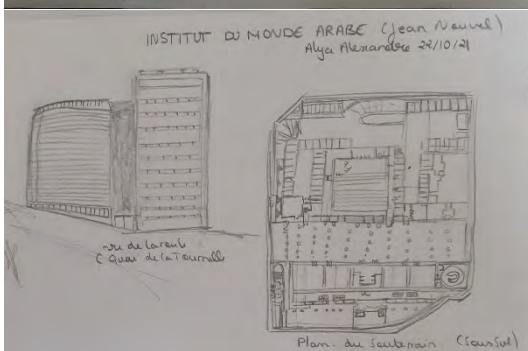 INSTITUT DU MONDE ARABE (Jean Nouvel)
Alya Alexandre 22/10/21
vu de la rue
( Quai de la Tournelle
Plan du Souterrain (Sous Sol)